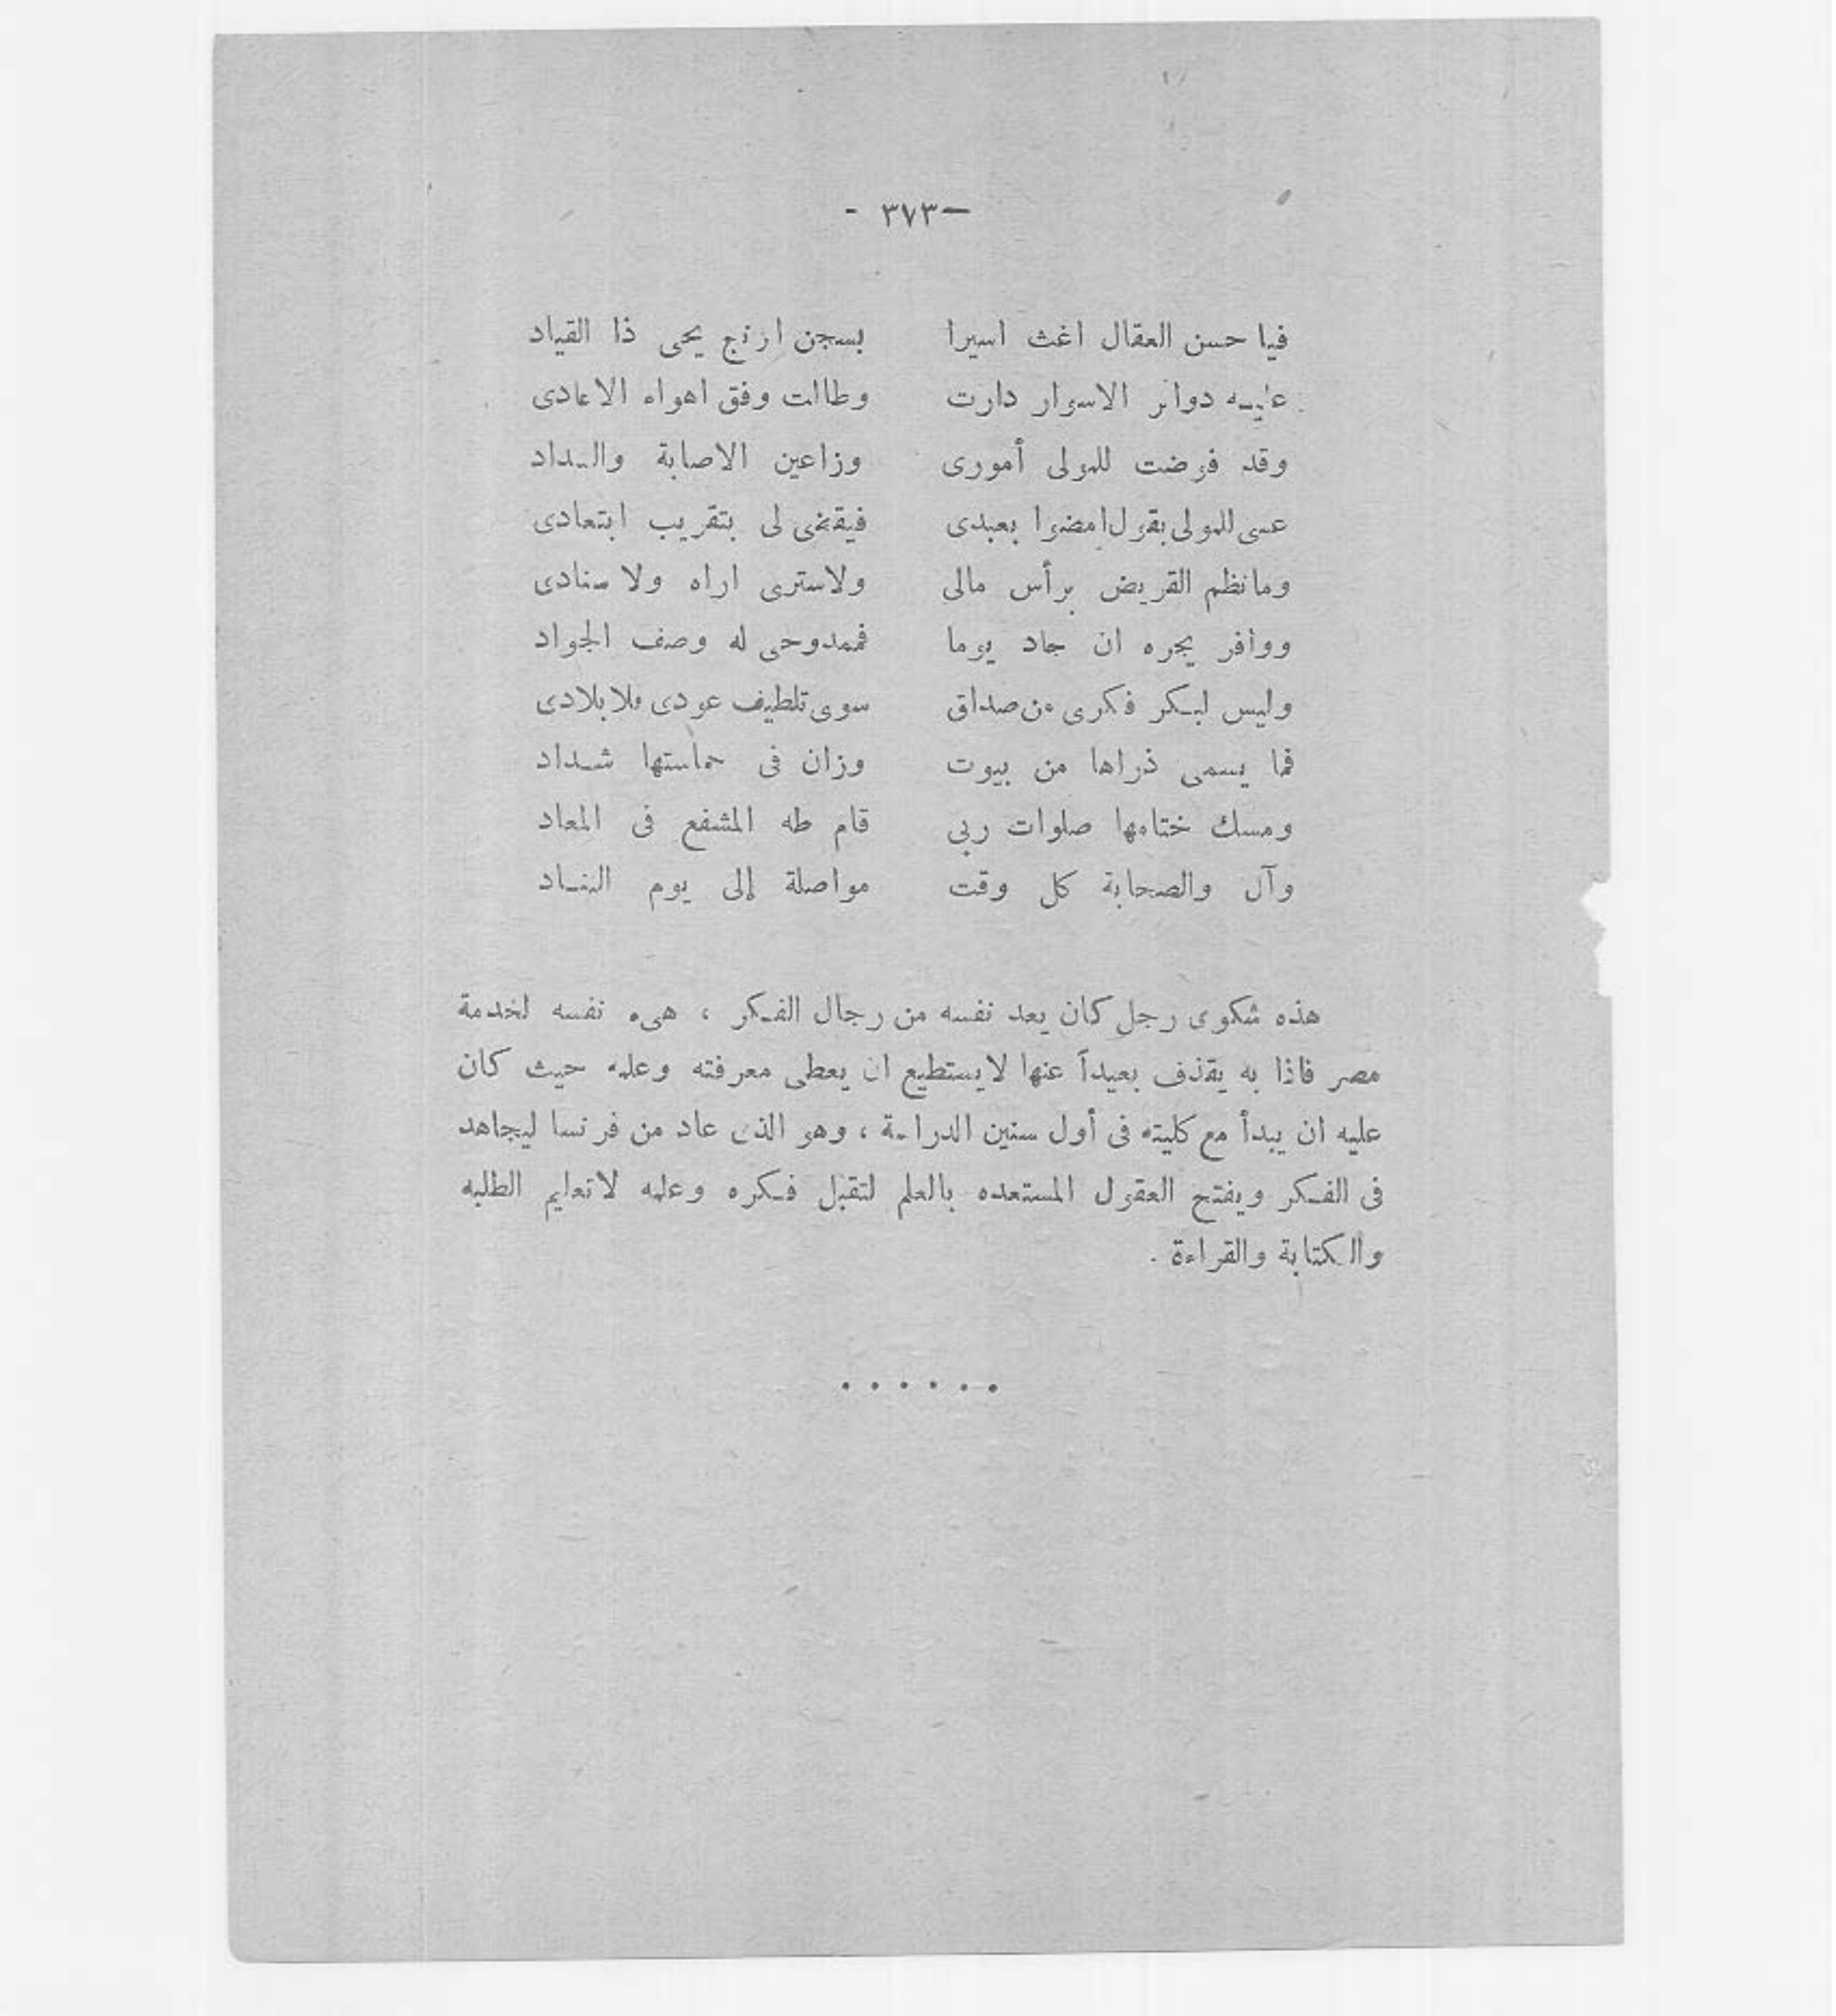 — ٣٧٣ -
فيا حسن العقال اغث اسيرا بسجن ازنج يحى ذا القياد
عليه دوائر الاسوار دارت وطالت وفق اهواء الاعادى
وقد فرضت للمولى أمورى وزاعين الاصابة والسداد
عسى للمولى يقول امضوا بعبدى فيقضى لى بتقريب ابتعادى
وما نظم القريض برأس مالى ولاسترى اراه ولا سنادى
ووافر يجره ان جاد يوما فممدوحى له وصف الجواد
وليس لبكر فكرى من صداق سوى تلطيف عودى بلا بلادى
فما يسمى ذراها من بيوت وزان فى حماستها شداد
ومسك ختامها صلوات ربى قام طه المشفع فى المعاد
وآل والصحابة كل وقت مواصلة إلى يوم التناد
هذه شكوى رجل كان يعد نفسه من رجال الفكر ، هىء نفسه لخدمة
مصر فاذا به يقذف بعيداً عنها لايستطيع ان يعطى معرفته وعلمه حيث كان
عليه ان يبدأ مع كليته فى أول سنين الدراسة ، وهو الذى عاد من فرنسا ليجاهد
فى الفكر ويفتح العقول المستعده بالعلم لتقبل فكره وعلمه لاتعليم الطلبه
والكتابة والقراءة .
. . . . . .